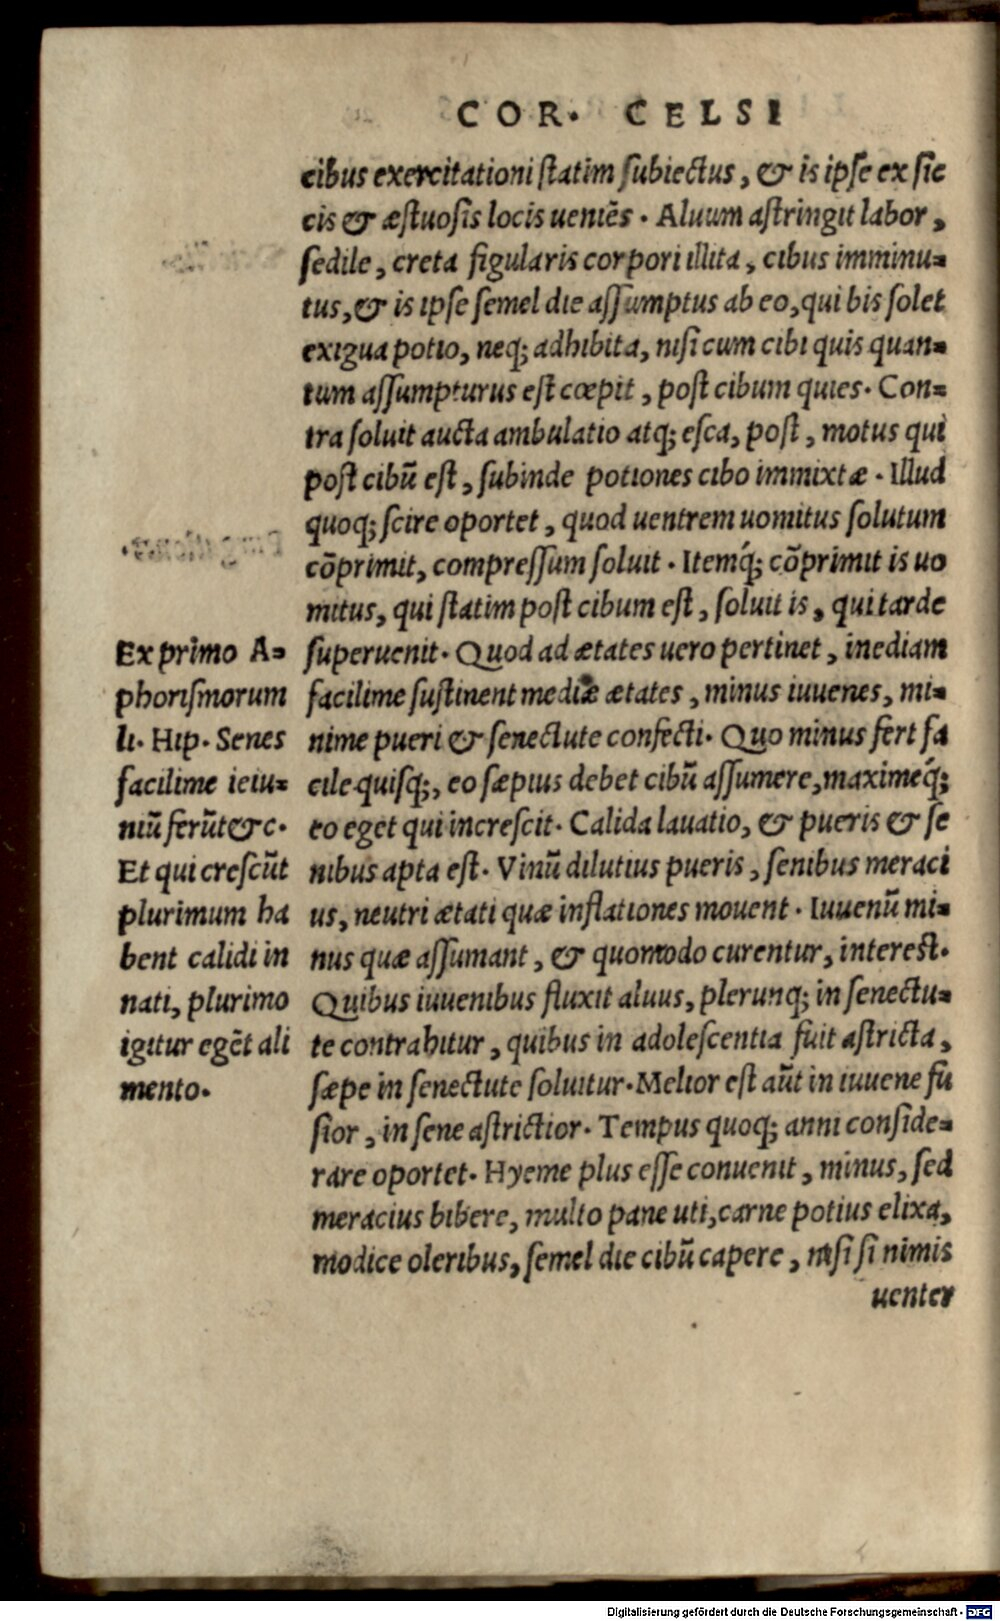 COR. CELSI
cibus exercitationi statim subiectus, & is ipse ex sic
cis & æstuosis locis ueniēs. Aluum astringit labor,
sedile, creta figularis corpori illita, cibus imminu-
tus, & is ipse semel die assumptus ab eo, qui bis solet
exigua potio, neq; adhibita, nisi cum cibi quis quan-
tum assumpturus est cœpit, post cibum quies. Con-
tra soluit aucta ambulatio atq; esca, post, motus qui
post cibū est, subinde potiones cibo immixtæ. Illud
quoq; scire oportet, quod uentrem uomitus solutum
cōprimit, compressum soluit. Itemq́; cōprimit is uo
mitus, qui statim post cibum est, soluit is, qui tarde
superuenit. Quod ad ætates uero pertinet, inediam
facilime sustinent mediæ ætates, minus iuuenes, mi-
nime pueri & senectute confecti. Quo minus fert fa
cile quisq;, eo sæpius debet cibū assumere, maximeq́;
eo eget qui increscit. Calida lauatio, & pueris & se
nibus apta est. Vinū dilutius pueris, senibus meraci
us, neutri ætati quæ inflationes mouent. Iuuenū mi-
nus quæ assumant, & quomodo curentur, interest.
Quibus iuuenibus fluxit aluus, plerunq; in senectu-
te contrahitur, quibus in adolescentia fuit astricta,
sæpe in senectute soluitur. Melior est aūt in iuuene fu
sior, in sene astrictior. Tempus quoq; anni conside-
rare oportet. Hyeme plus esse conuenit, minus, sed
meracius bibere, multo pane uti, carne potius elixa,
modice oleribus, semel die cibū capere, nisi si nimis
uenter
Ex primo A-
phorismorum
li. Hip. Senes
facilime ieiu-
niū ferūt & c.
Et qui crescūt
plurimum ha
bent calidi in
nati, plurimo
igitur egēt ali
mento.
Digitalisierung gefördert durch die Deutsche Forschungsgemeinschaft - DFG